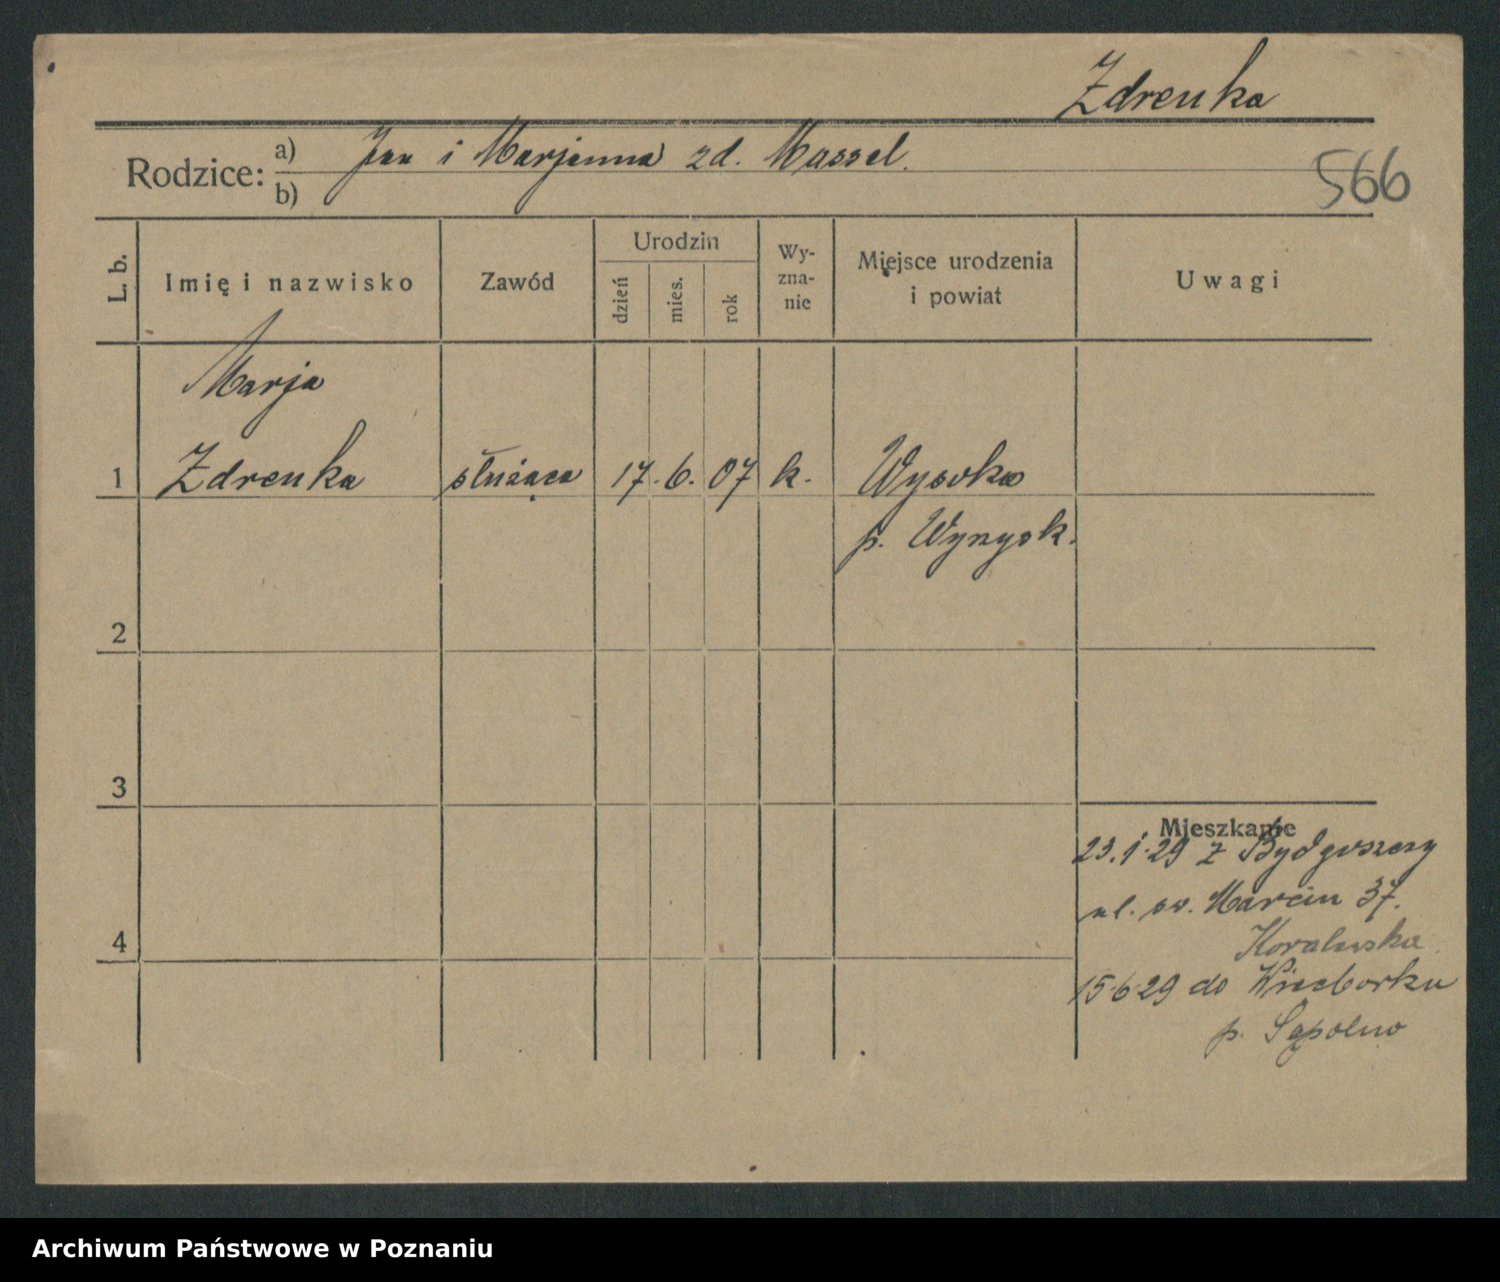 Zdrenka
Rodzice: a) Jan i Marjanna zd. Massel.
b)
566
L. b.
Imię i nazwisko
Zawód
Urodzin
dzień
mies.
rok
Wy-
zna-
nie
Miejsce urodzenia
i powiat
Uwagi
Marja
1 Zdrenka służąca 17. 6. 07 k. Wysoka
p. Wyrzysk.
2
3
Mieszkanie
23.1.29 z Bydgoszczy
ul. św. Marcin 37.
4
Koralewska
15.6.29 do Więcborku
p. Sępolno
Archiwum Państwowe w Poznaniu